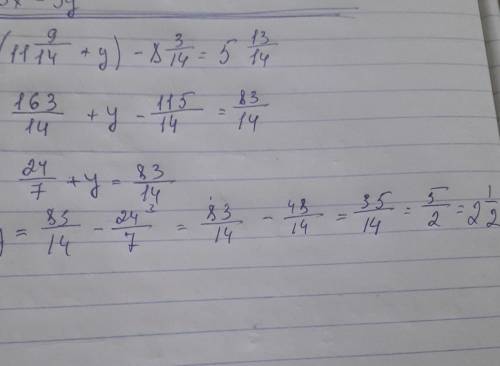 (11 9/14 + y) - 8 3/14 = 5 13/14
163/14 + y - 115/14 = 83/14
24/7 + y = 83/14
= 83/14 - 24/7 = 83/14 - 48/14 = 35/14 = 5/2 = 2 1/2